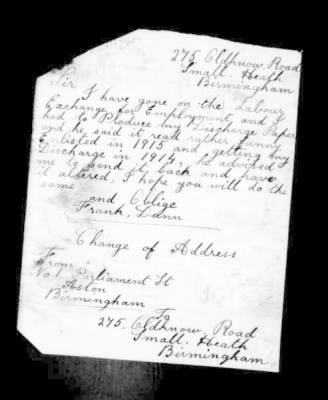 275, Oldhnow Road
Small. Heath
Birmingham
Sir
I have gone on the Labour
Exchange for Employment, and I
had to Produce my Discharge Paper
and he said it read rather funny
Enlisted in 1915 and getting my
Discharge in 1914, he advised
me to send it back and have
it altered, I hope you will do the
same
and Oblige
Frank, Lunn
Change of Address
From
No 1 Parliament St
Aston
Birmingham
To
275. Oldhnow, Road
Small. Heath
Birmingham